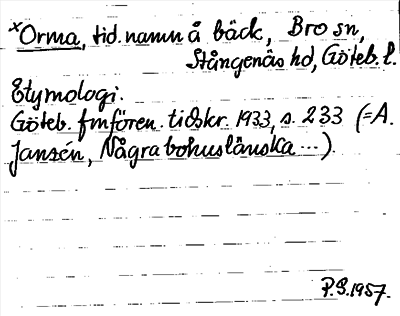 ×Orma, tid. namn å bäck, Bro sn,
Stångenäs hd, Göteb. l.
Etymologi.
Göteb. fmfören. tidskr. 1933, s. 233 (=A.
Janzén, Några bohuslänska ...).
P.S. 1957.